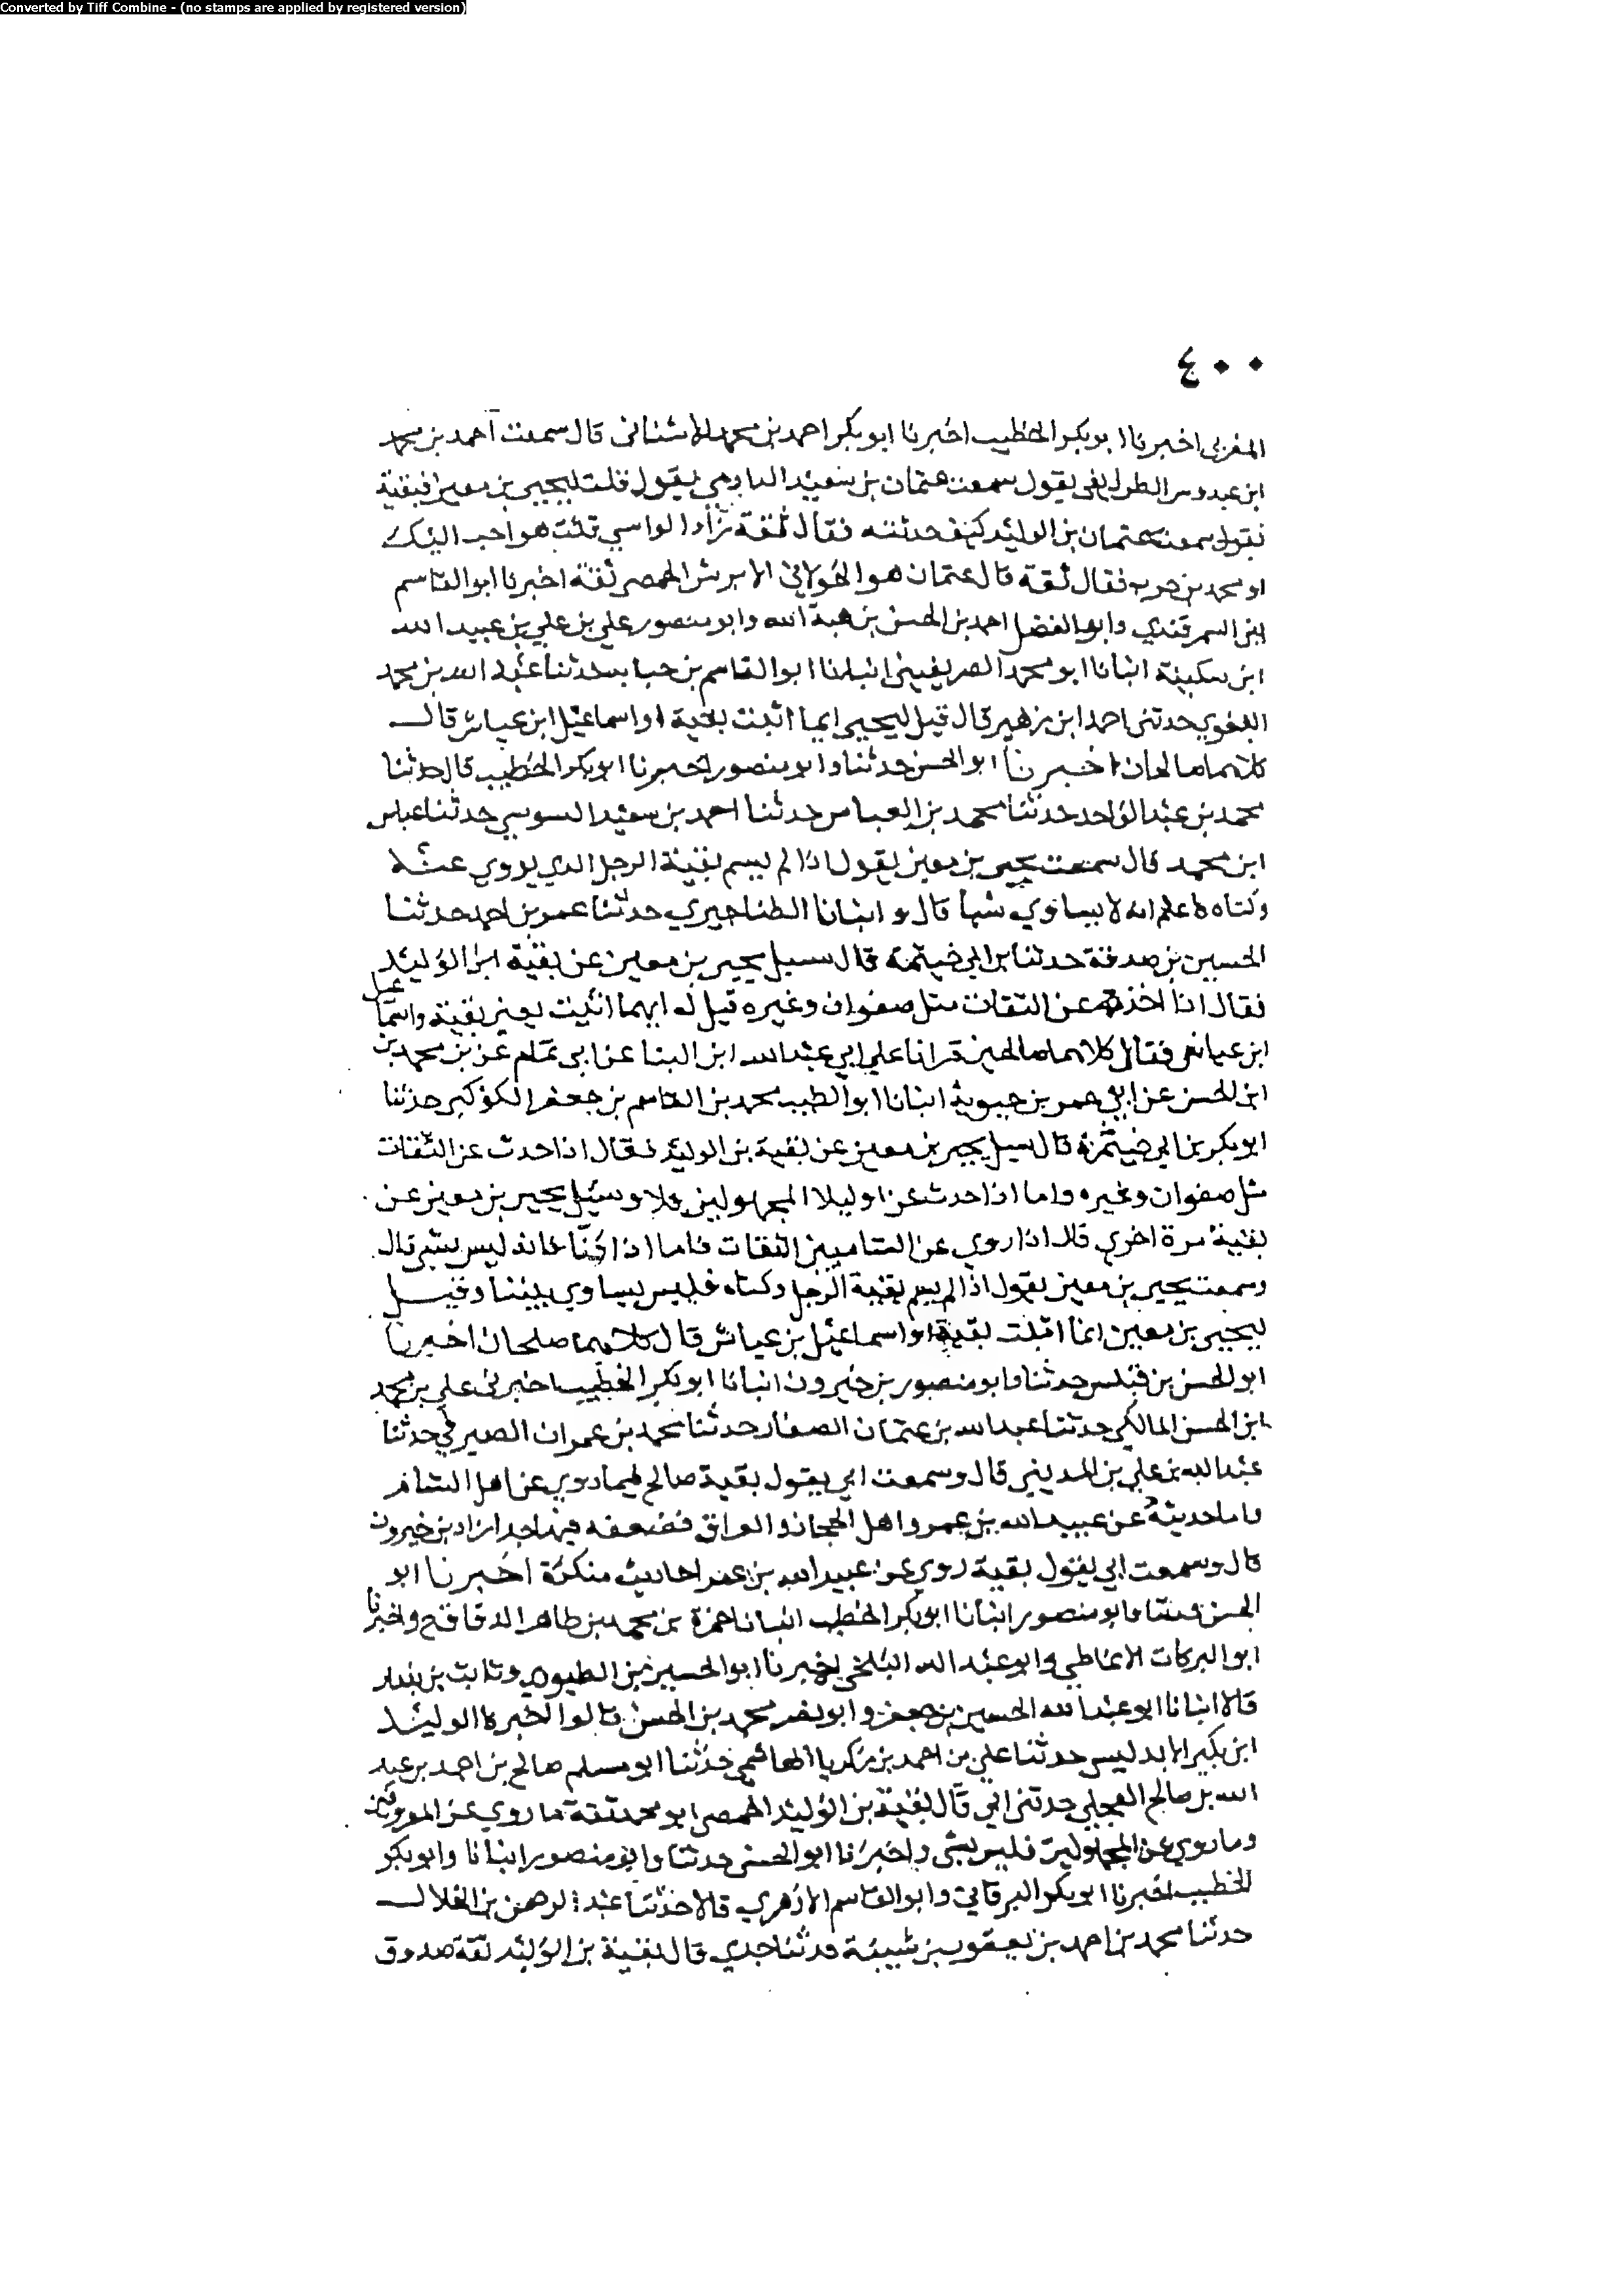 Converted by Tiff Combine - (no stamps are applied by registered version)
٤٠٠
المغربي اخبرنا ابو بكر الخطيب اخبرنا ابو بكر احمد بن محمد الاشناني قال سمعت احمد بن محمد
ابن عبدوس الطرايفي يقول سمعت عثمان بن سعيد الدارمي يقول قلت ليحيى بن معين فبقية
بن الوليد كيف حديثه فقال ثقة زاد الواسي قلت هو احب اليك
او محمد بن حرب فقال ثقة قال عثمان هو الخولاني الابرش الحمصي ثقة اخبرنا ابو القاسم
ابن السمرقندي وابو الفضل احمد بن الحسن بن هبة الله وابو منصور علي بن علي بن عبيد الله
ابن سكينة انبانا ابو محمد الصريفيني انبانا ابو القاسم بن حبابه حدثنا عبد الله بن محمد
البغوي حدثني احمد ابن زهير قال قيل ليحيى ايما اثبت بقية او اسماعيل ابن عياش قال
كلاهما صالحان اخبرنا ابو الحسن حدثنا وابو منصور اخبرنا ابو بكر الخطيب قال حدثنا
محمد بن عبد الواحد حدثنا محمد بن العباس حدثنا احمد بن سعيد السوسي حدثنا عباس
ابن محمد قال سمعت يحيى بن معين يقول اذا لم يسم بقية الرجل الذي يروي عنه
وكناه فاعلم انه لا يساوي شيا قال وانبانا الطناجيري حدثنا عمر بن احمد حدثنا
الحسين بن صدقة حدثنا بن ابي خيثمة قال سيل يحيى بن معين عن بقية ابن الوليد
فقال اذا اخذته عن الثقات مثل صفوان وغيره قيل له ايهما اثبت يعني بقية واسماعيل
ابن عياش فقال كلاهما صالحين قرانا علي ابي عبد الله ابن البنا عن ابي تمام عن بن محمد بن
ابن الحسن عن ابي عمر بن حيوية انبانا ابو الطيب محمد بن القاسم بن جعفر الكوكبي حدثنا
ابو بكر بن ابي خيثمة قال سيل يحيى بن معين عن بقية بن الوليد فقال اذا حدث عن الثقات
مثل صفوان وغيره واما اذا حدث عن اوليك المجهولين فلا وسئيل يحيى بن معين عن
بقية مرة اخري قال اذا روي عن الشاميين الثقات فاما اذا كنا فانه ليس بشي قال
وسمعت يحيى بن معين يقول اذا لم يسم بقية الرجل وكناه فليس يساوي شيئا وقيل
ليحيى بن معين ايما اثبت بقية او اسماعيل بن عياش قال كلاهما صلحان اخبرنا
ابو الحسن بن قبيس حدثنا وابو منصور بن خيرون انبانا ابو بكر الخطيب اخبرني علي بن محمد
ابن الحسن المالكي حدثنا عبد الله بن عثمان الصفار حدثنا محمد بن عمران الصيرفي حدثنا
عبد الله بن علي بن المديني قال وسمعت ابي يقول بقية صالح فيما روي عن اهل الشام
واما حديثه عن عبيد الله بن عمر واهل الحجاز والعراق فضعفه فيها جدا زاد بن خيرون
قال وسمعت ابي يقول بقية روي عن عبيد الله بن عمر احاديث منكرة اخبرنا ابو
الحسن حدثنا وابو منصور انبانا ابو بكر الخطيب انبانا حمزة بن محمد بن طاهر الدقاق ح واخبرنا
ابو البركات الانماطي وابو عبد الله البلخي اخبرنا ابو الحسين بن الطيوري وثابت بن بندار
قالا انبانا ابو عبد الله الحسين بن جعفر وابو نصر محمد بن الحسن قالوا اخبرنا الوليد
ابن بكير الابدليسي حدثنا علي بن احمد بن زكريا الهاشمي حدثنا ابو مسلم صالح بن احمد بن عبد
الله بن صالح العجلي حدثني ابي قال بقية بن الوليد الحمصي ابو محمد ثقة ما روي عن المعروفين
وما روي عن المجهولين فليس بشي واخبرنا ابو الحسن حدثنا وابو منصور انبانا وابو بكر
الخطيب اخبرنا ابو بكر البرقاني وابو القاسم الازهري قالا حدثنا عبد الرحمن بن الخلال
حدثنا محمد بن احمد بن يعقوب بن شيبة حدثنا جدي قال بقية بن الوليد ثقة صدوق